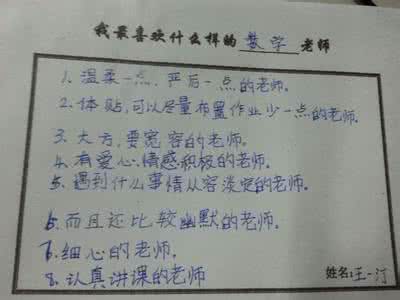 我最喜欢什么样的 数学 老师
1. 温柔一点,严后一点的老师。
2. 体贴,可以尽量布置作业少一点的老师.
3. 大方,要宽容的老师.
4. 有爱心,情感积极的老师.
5. 遇到什么事情从容淡定的老师。
6. 而且还比较幽默的老师.
7. 细心的老师.
8. 认真讲课的老师
姓名:王一汀